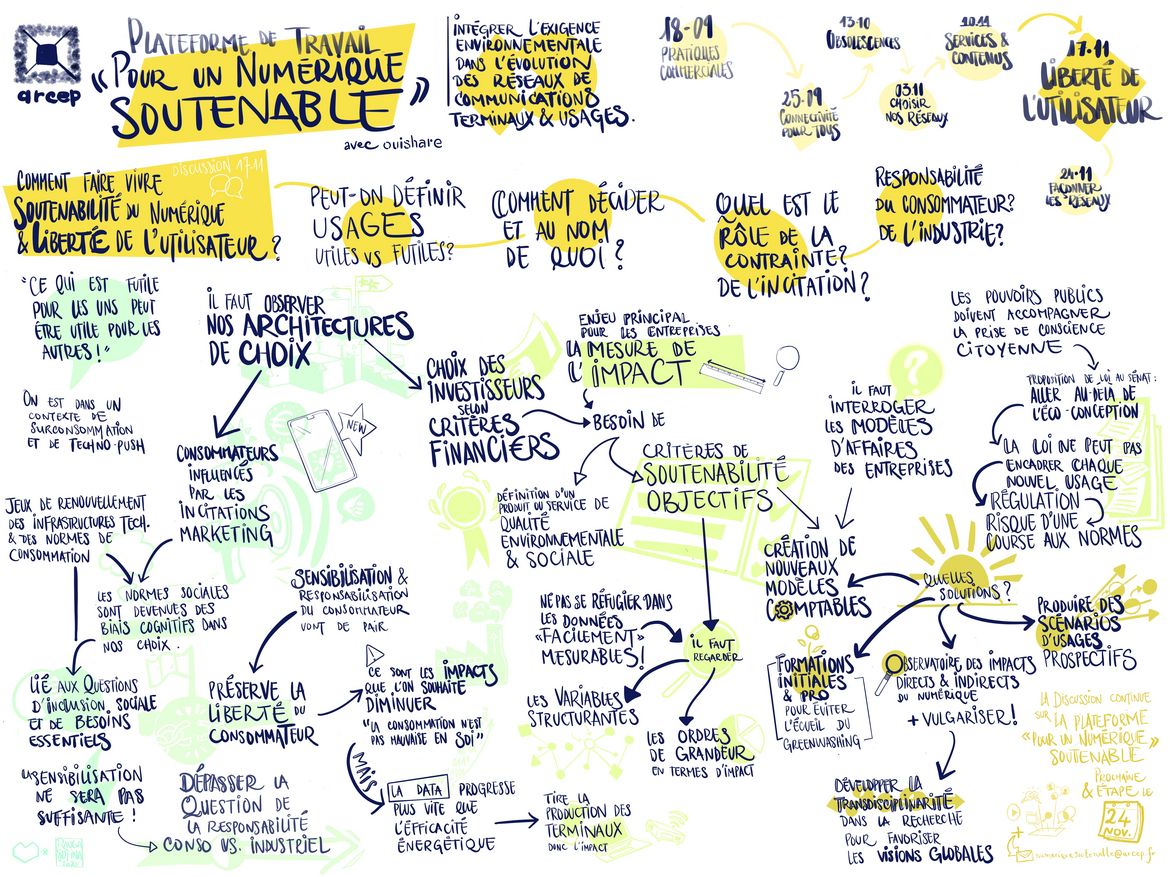 arcep
PLATEFORME DE TRAVAIL
"POUR UN NUMÉRIQUE
SOUTENABLE"
avec ouishare
INTÉGRER L'EXIGENCE
ENVIRONNEMENTALE
DANS L'ÉVOLUTION
DES RÉSEAUX DE
COMMUNICATIONS
TERMINAUX & USAGES.
18-09
PRATIQUES
COMMERCIALES
25-09
CONNECTIVITÉ
POUR TOUS
13-10
OBSOLESCENCES
03.11
CHOISIR
NOS RÉSEAUX
10.11
SERVICES &
CONTENUS
17.11
LIBERTÉ DE
L'UTILISATEUR
24.11
FAÇONNER
LES RÉSEAUX
DISCUSSION 17.11
COMMENT FAIRE VIVRE
SOUTENABILITÉ DU NUMÉRIQUE
& LIBERTÉ DE L'UTILISATEUR ?
PEUT-ON DÉFINIR
USAGES
UTILES VS FUTILES?
COMMENT DÉCIDER
ET AU NOM
DE QUOI ?
QUEL EST LE
RÔLE DE LA
CONTRAINTE?
DE L'INCITATION?
RESPONSABILITÉ
DU CONSOMMATEUR?
DE L'INDUSTRIE?
"CE QUI EST FUTILE
POUR LES UNS PEUT
ÊTRE UTILE POUR LES
AUTRES !"
ON EST DANS UN
CONTEXTE DE
SURCONSOMMATION
ET DE TECHNO-PUSH
IL FAUT OBSERVER
NOS ARCHITECTURES
DE CHOIX
CONSOMMATEURS
INFLUENCÉS
PAR LES
INCITATIONS
MARKETING
NEW
CHOIX DES
INVESTISSEURS
SELON
CRITÈRES
FINANCIERS
ENJEU PRINCIPAL
POUR LES ENTREPRISES
LA MESURE DE
L'IMPACT
BESOIN DE
DÉFINITION D'UN
PRODUIT OU SERVICE DE
QUALITÉ
ENVIRONNEMENTALE
& SOCIALE
CRITÈRES DE
SOUTENABILITÉ
OBJECTIFS
IL FAUT
INTERROGER
LES MODÈLES
D'AFFAIRES
DES ENTREPRISES
LES POUVOIRS PUBLICS
DOIVENT ACCOMPAGNER
LA PRISE DE CONSCIENCE
CITOYENNE
PROPOSITION DE LOI AU SÉNAT:
ALLER AU-DELÀ DE
L'ÉCO-CONCEPTION
LA LOI NE PEUT PAS
ENCADRER CHAQUE
NOUVEL USAGE
RÉGULATION
RISQUE D'UNE
COURSE AUX NORMES
JEUX DE RENOUVELLEMENT
DES INFRASTRUCTURES TECH.
& DES NORMES DE
CONSOMMATION
LES NORMES SOCIALES
SONT DEVENUES DES
BIAIS COGNITIFS DANS
NOS CHOIX.
LIÉ AUX QUESTIONS
D'INCLUSION SOCIALE
ET DE BESOINS
ESSENTIELS
"SENSIBILISATION
NE SERA PAS
SUFFISANTE !
SENSIBILISATION &
RESPONSABILISATION
DU CONSOMMATEUR
VONT DE PAIR
PRÉSERVE LA
LIBERTÉ DU
CONSOMMATEUR
CE SONT LES IMPACTS
QUE L'ON SOUHAITE
DIMINUER
"LA CONSOMMATION N'EST
PAS MAUVAISE EN SOI"
MAIS
LA DATA PROGRESSE
PLUS VITE QUE
L'ÉFFICACITÉ
ÉNERGÉTIQUE
TIRE LA
PRODUCTION DES
TERMINAUX
DONC L'IMPACT
DÉPASSER LA
QUESTION DE
LA RESPONSABILITÉ
CONSO VS. INDUSTRIEL
NE PAS SE RÉFUGIER DANS
LES DONNÉES
«FACILEMENT»
MESURABLES!
IL FAUT
REGARDER
LES VARIABLES
STRUCTURANTES
LES ORDRES
DE GRANDEUR
EN TERMES D'IMPACT
CRÉATION DE
NOUVEAUX
MODÈLES
COMPTABLES
QUELLES
SOLUTIONS ?
FORMATIONS
INITIALES
& PRO
POUR ÉVITER
L'ÉCUEIL DU
GREENWASHING
OBSERVATOIRE DES IMPACTS
DIRECTS & INDIRECTS
DU NUMÉRIQUE
+ VULGARISER!
PRODUIRE DES
SCÉNARIOS
D'USAGES
PROSPECTIFS
DÉVELOPPER LA
TRANSDISCIPLINARITÉ
DANS LA RECHERCHE
POUR FAVORISER
LES VISIONS GLOBALES
LA DISCUSSION CONTINUE
SUR LA PLATEFORME
"POUR UN NUMÉRIQUE
SOUTENABLE"
PROCHAINE
& ÉTAPE LE
24
NOV.
numeriquesoutenable@arcep.fr